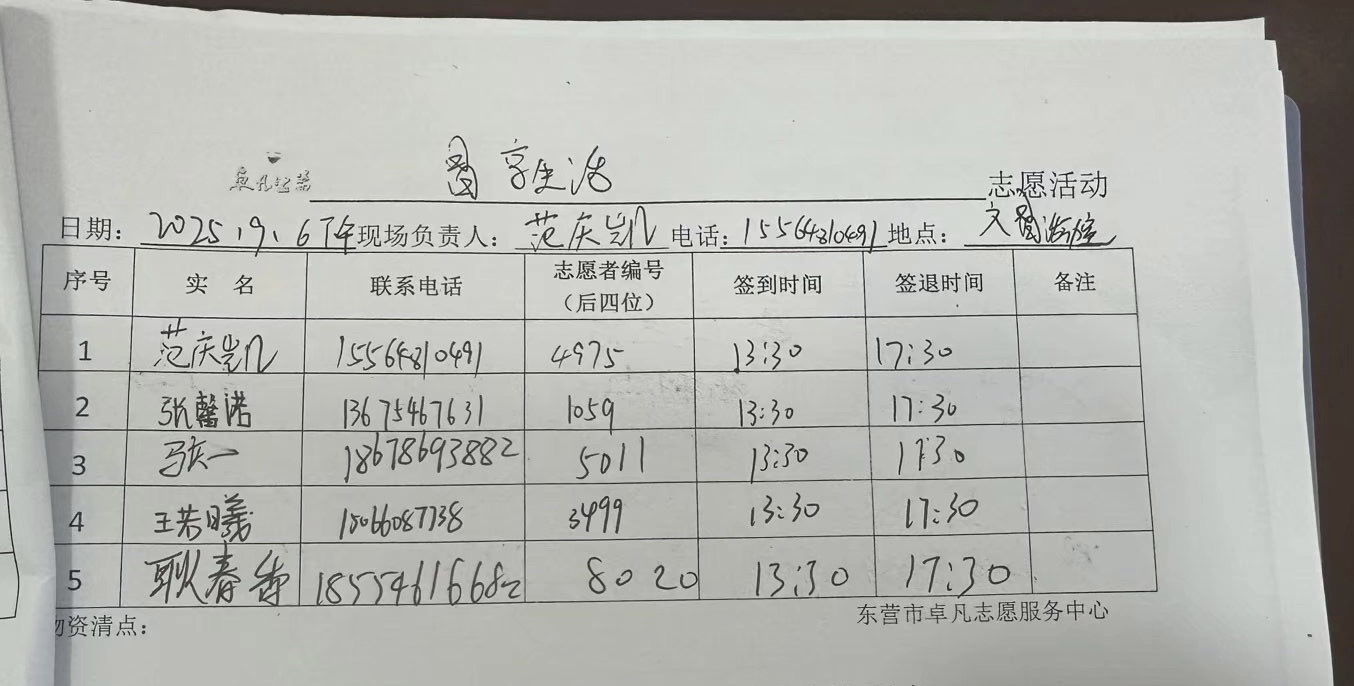 享生活 志愿活动
日期: 2025.9.6下午 现场负责人: 范庆岩 电话: 15564810491 地点: 文
序号 实 名 联系电话 志愿者编号（后四位） 签到时间 签退时间 备注
1 范庆凯 15564810491 4975 13:30 17:30
2 张馨诺 13675467631 1059 13:30 17:30
3 18678693882 5011 13:30 17:30
4 王若曦 15066087738 3499 13:30 17:30
5 耿春 18554616682 8020 13:30 17:30
物资清点： 东营市卓凡志愿服务中心